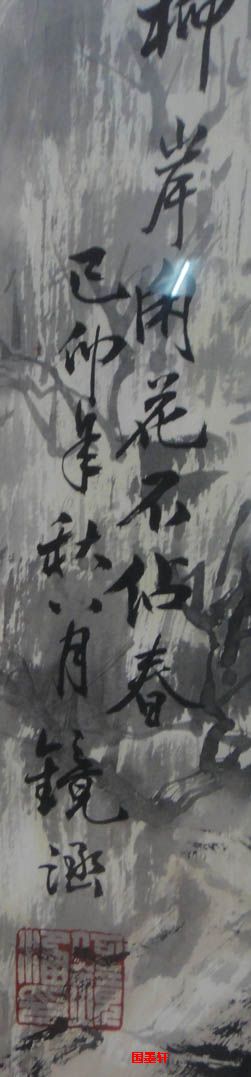 柳岸闲花不佔春
己卯年秋八月镜涵
国美轩